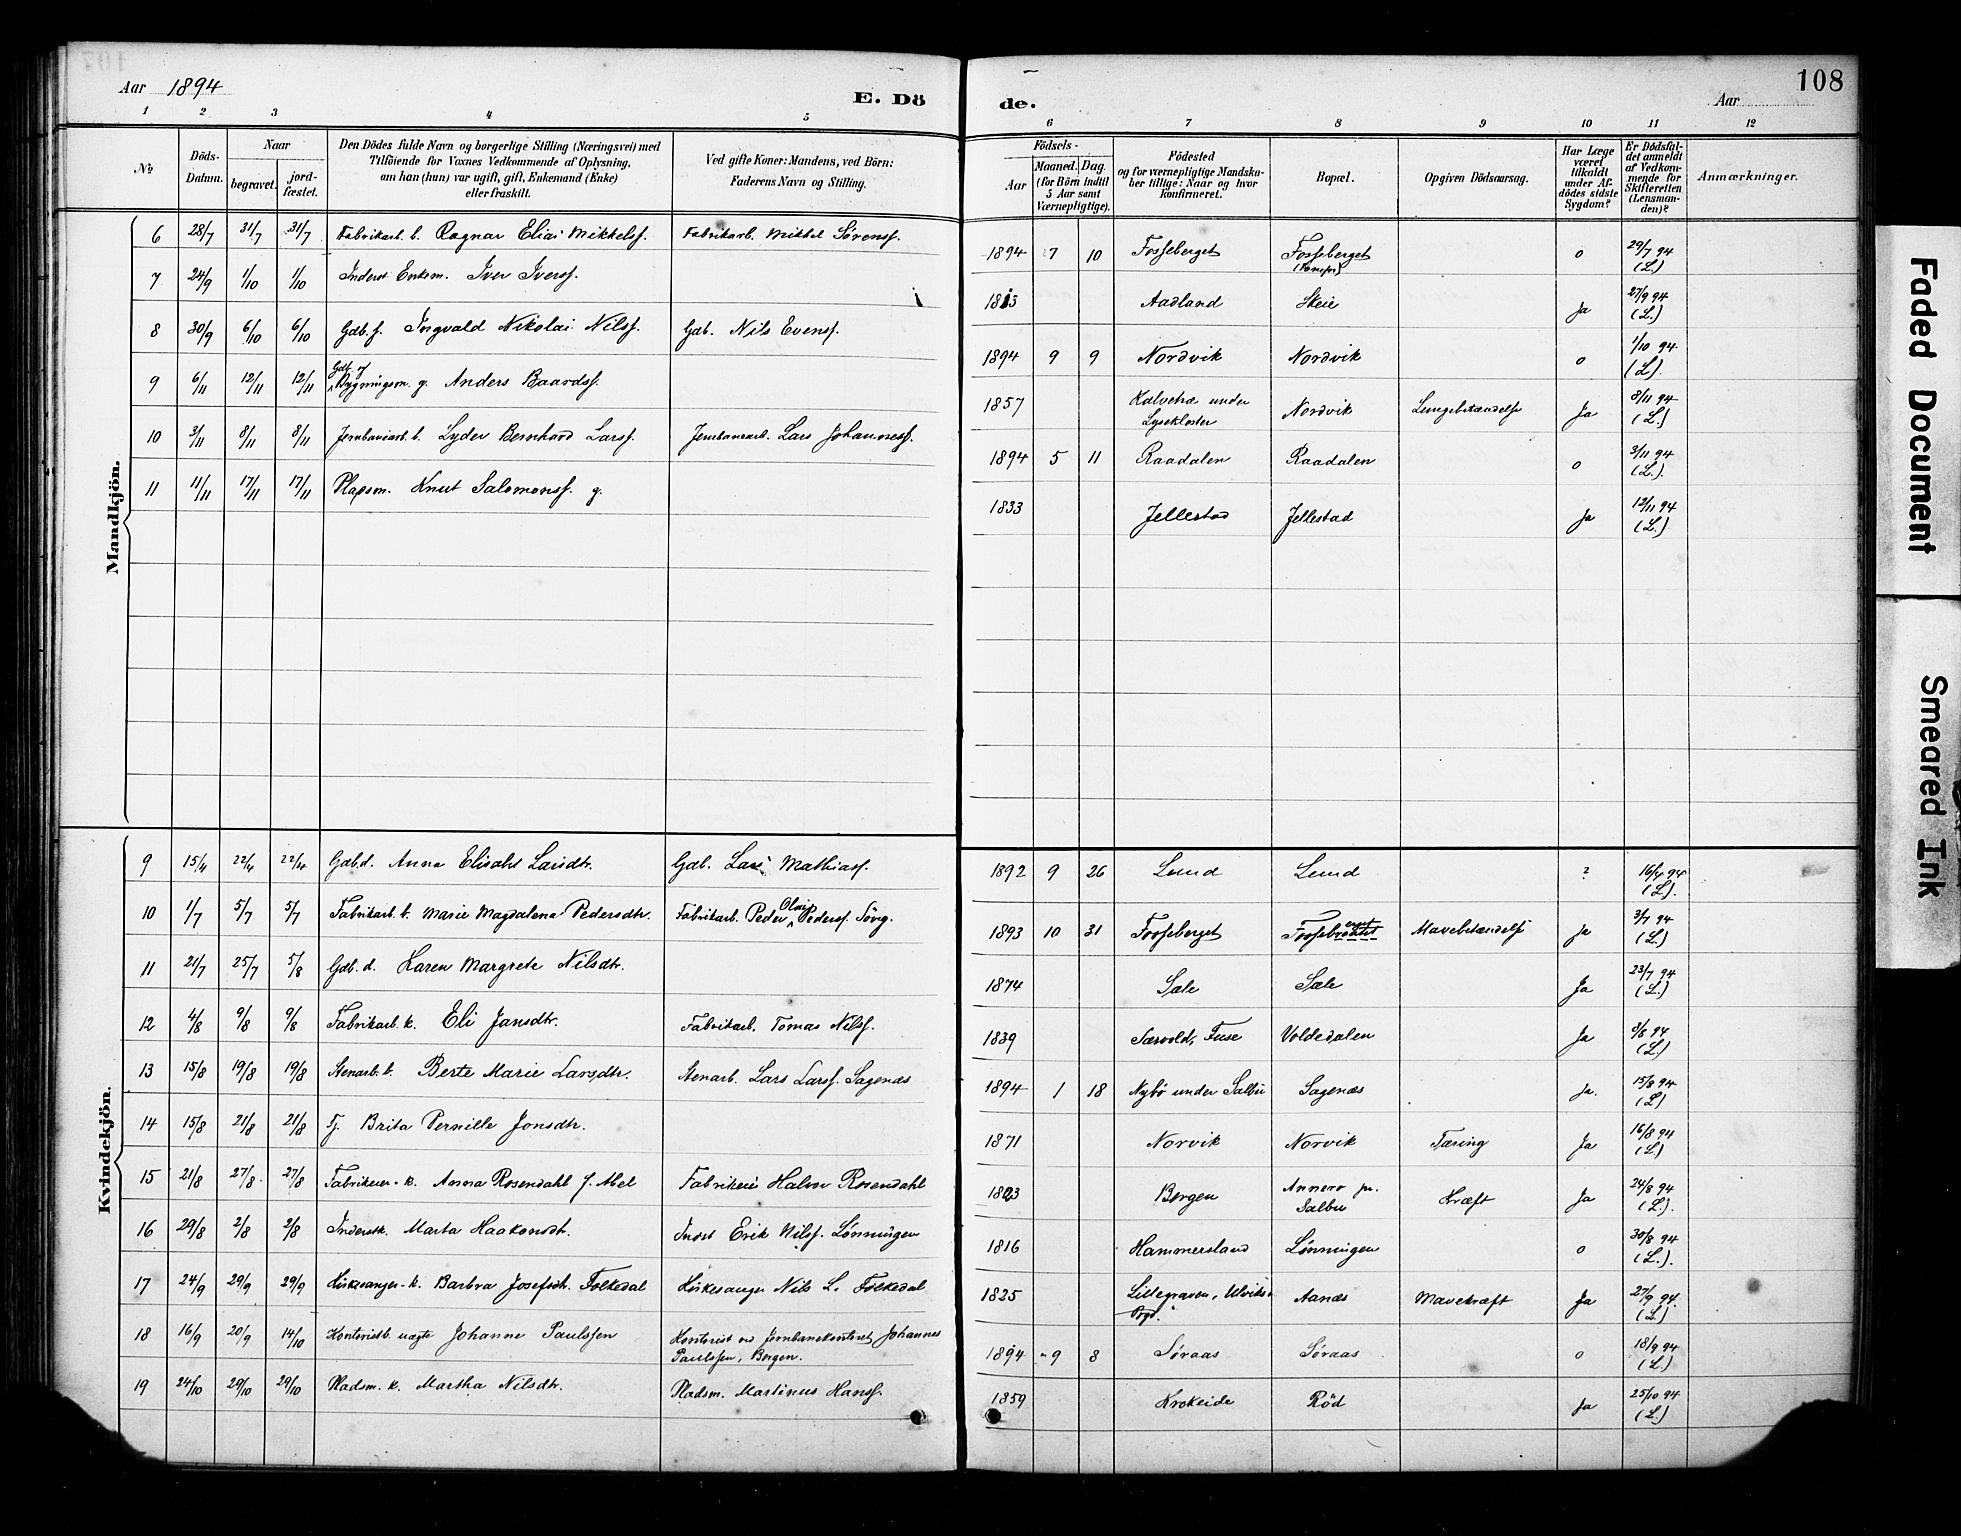 Aar 1894
E. Dö
de.
Aar
108
1 2 3 4 5 6 7 8 9 10 11 12
No
Döds-Datum.
Naar
begravet.
jord-fæstet.
Den Dödes fulde Navn og borgerlige Stilling (Næringsvei) med
Tilföiende for Voxnes Vedkommende af Oplysning,
om han (hun) var ugift, gift, Enkemand (Enke)
eller fraskilt.
Ved gifte Koner: Mandens, ved Börn:
Faderens Navn og Stilling.
Födsels-
Aar
Maaned. Dag.
(for Börn indtil
5 Aar samt
Værnepligtige).
Födested
og for værnepligtige Mandska-
ber tillige: Naar og hvor
konfirmeret.
Bopæl.
Opgiven Dödsaarsag.
Har Læge
været
tilkaldt
under Af-
dödes sidste
Sygdom?
Er Dödsfal-
det anmeldt
af Vedkom-
mende for
Skifteretten
(Lensman-
den)?
Anmærkninger.
Mandkjön.
6 28/7 31/7 31/7 Fabrikarb. b. Ragnar Elias Mikkelsf. Fabrikarb. Mikkel Sørensf. 1894 7 10 Fosseberget Fosseberget o 29/7 94 (L.)
7 24/9 1/10 1/10 Inderst Enkem. Iver Iversf. 1813 Aadland Skeie Ja 27/9 94 (L.)
8 30/9 6/10 6/10 Gdb. s. Ingvald Nikolai Nilsf. Gdb. Nils Evensf. 1894 9 9 Nordvik Nordvik o 1/10 94 (L).
9 6/11 12/11 12/11 Gdb. og Bygningsm. g. Anders Baardsf. 1857 Kalvetræ under Lysekloster Nordvik Lungebetændelse Ja 8/11 94 (L.)
10 3/11 8/11 8/11 Jernbanearb. b. Lyder Bernhard Larsf. Jernbanearb. Lars Johannesf. 1894 5 11 Raadalen Raadalen o 3/11 94 (L.).
11 11/11 17/11 17/11 Pladsm. Knut Salomonsf. g. 1833 Jellestad Jellestad Ja 12/11 94 (L.)
Kvindekjön.
9 15/4 22/4 22/4 Gdb. d. Anna Elisabet Larsdtr. Gdb. Lars Mathiasf. 1892 9 26 Lund Lund ? 16/4 94 (L).
10 1/7 5/7 5/7 Fabrikarb. b. Marie Magdalena Pedersdtr. Fabrikarb. Peder Olai Pedersf. 1893 10 31 Fosseberget Mavebetændelse Ja 3/7 94 (L.)
11 21/7 25/7 5/8 Gdb. d. Karen Margrete Nilsdtr. 1874 Sæle Sæle Ja 23/7 94 (L.)
12 4/8 9/8 9/8 Fabrikarb. k. Eli Jansdtr. Fabrikarb. Tomas Nilsf. 1839 Særvold, Fuse Voldedalen Ja 8/8 94 (L.)
13 15/8 19/8 19/8 Stenarb. b. Berte Marie Larsdtr. Stenarb. Lars Larsf. Sagenæs 1894 1 18 Nybø under Salbu Sagenæs Ja. 15/8 94 (L)
14 15/8 21/8 21/8 Tj. Brita Pernille Jonsdtr. 1871 Norvik Norvik Tæring Ja 16/8 94 (L)
15 21/8 27/8 27/8 Fabrikeier-k. Anna Rosendahl f. Abel Fabrikeier Halvor Rosendahl 1823 Bergen Annero pr. Salbu Kræft Ja 24/8 94 (L.).
16 29/8 2/8 2/8 Inderstk. Marta Haakonsdtr. Indst Erik Nilsf. Lønningen 1816 Hammersland Lønningen o 30/8 94 (L.).
17 24/9 29/9 29/9 Kirkesanger-k. Barbra Josefsdtr. Folkedal Kirkesanger Nils L. Folkedal 1825 Lillegraven, Ulviks Prgd. Aanæs Mavekræft Ja 27/9 94. (L.)
18 16/9 20/9 14/10 Kontoristb. uægte Johanne Paulssen Kontorist ved Jernbanekontoret Johannes Paulssen, Bergen. 1894 9 8 Søraas Søraas o 18/9 94 (L.)
19 24/10 29/10 29/10 Pladsm. k. Martha Nilsdtr. Pladsm. Martinus Hansf. 1859 Krokeide Röd Ja 25/10 94 (L.)
Faded Document
Smeared Ink